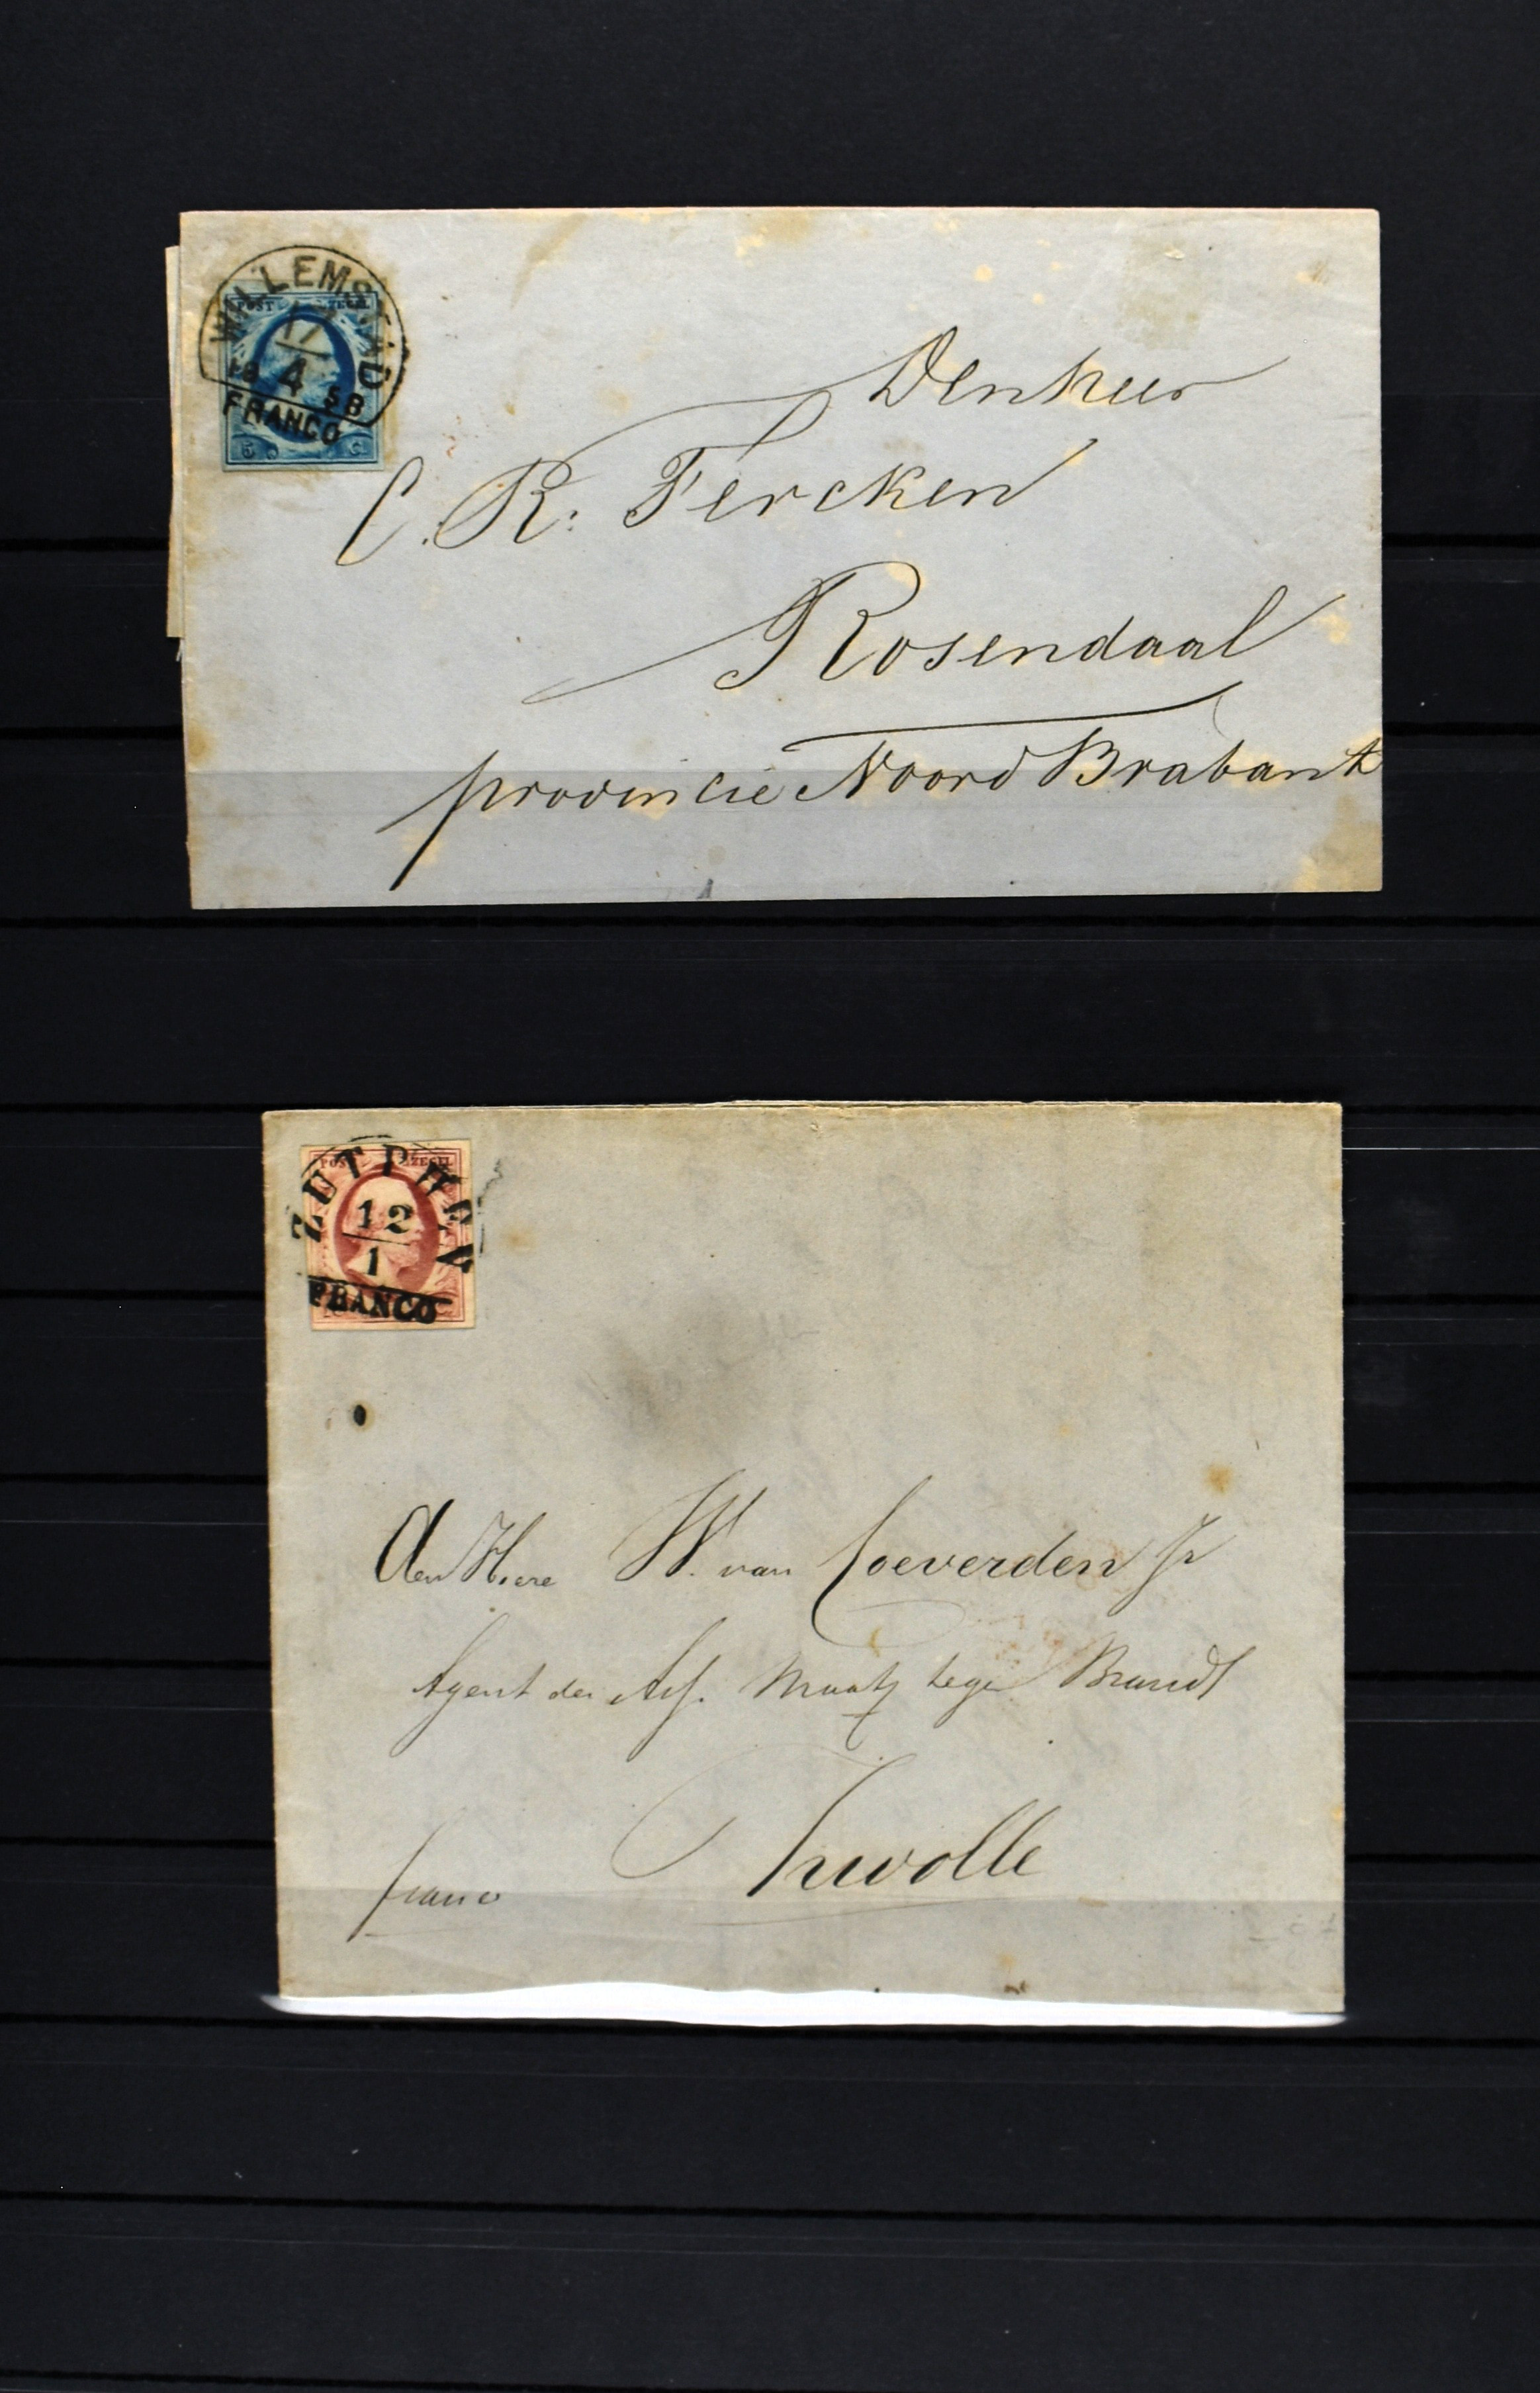 WILLEMSTAD
POST ZEGEL
17
4
18 58
FRANCO
5 C
Den heer
C. R. Fercken
Rosendaal
provincie Noord Brabant
ZUTPHEN
POST ZEGEL
12
1
FRANCO
den Heere W. van Coeverden Jr
Agent der Ass. Maats tege Brand
Zwolle
franco